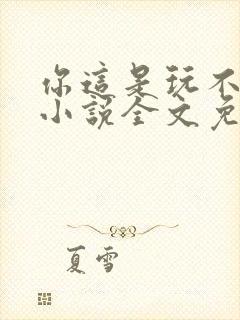 你這是玩不
小說全文免
夏雪